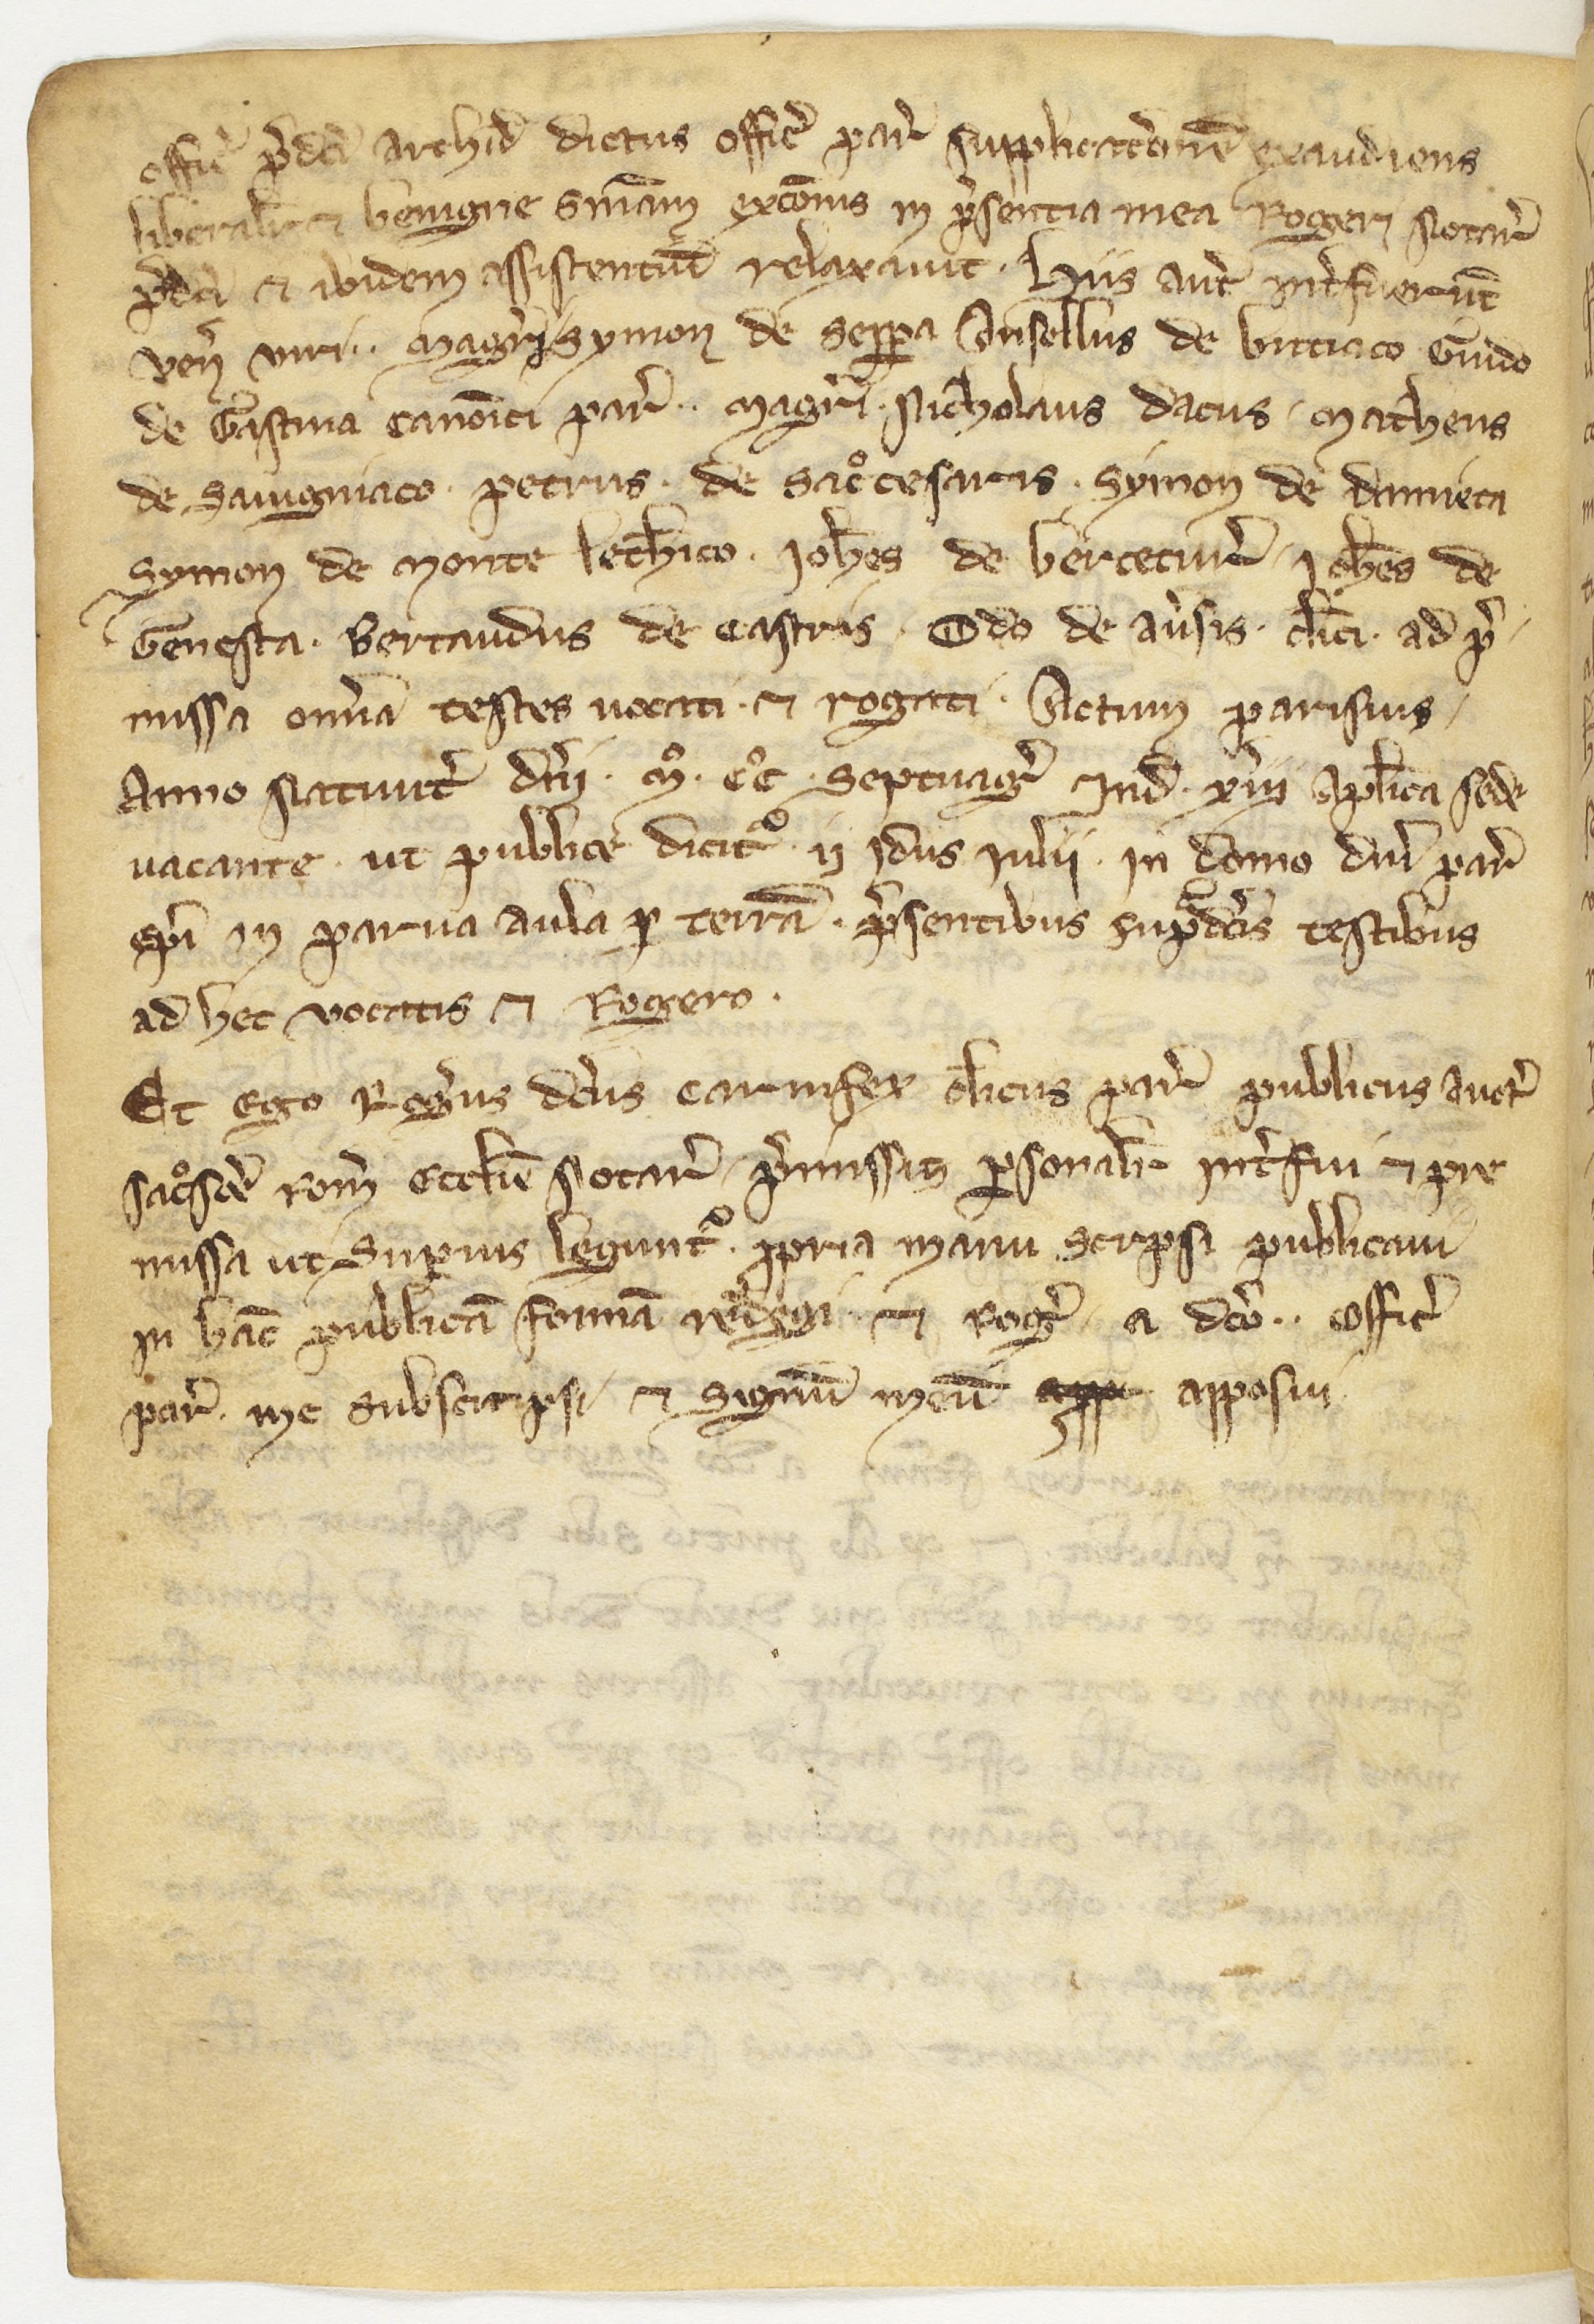 offic̃ p̃dc̃i archid̃ dictus offic̃ par̃ supplicatc̃onẽ exaudiens
liberalit̃ ⁊ benigne sñiam excõnis in p̃sentia mea Rogeri Notar̃
p̃dc̃i ⁊ ibidem assistentiũ relaxavit. Hiis aut̃ int̃fuerũt
veñ viri.. Magr̃i Symon de Serpa Ansellus de buciaco Guido
de Gastina canõici par̃.. Magr̃i. Nicholaus dacus / Matheus
de Savigniaco. petrus. de Sac̊cesaris. Symon de damieta
Symon de Monte letħico. Joħes de berceturĩ / Joħes de
Genesta. Bertaudus de Castris. Odo de av̾sis. cl̃ici. ad p̃
missa om̃ia testes vocati. ⁊ rogati. Actum parisius /
Anno Nativit̃ dñi. M̊. CC̊. Septuag̃ Ind̃. xiii Apl̃ica sede
vacante. ut publice dicit᷑. ii idus Iulii. in domo dñi par̃
ep̃i in parva aula p̱ terrã. p̃sentibus sup̃dc̃is testibus
ad hec vocatis ⁊ Rogero.
Et Ego Rog̾us dc̃us carnifex cl̃icus par̃ publicus auct̃
sac̊sc̃e rom̃ Eccl̃ie Notar̃ / p̃missis p̱sonalit̃ int̃fui ⁊ pre
missa ut Superius legunt᷑. ꝓpria manu scripsi publicavi
in hãc publicã formã redegi. ⁊ rog̃ / a dc̃o.. Offic̃
par̃. me subscripsi / ⁊ Signũ meũ appo apposui.